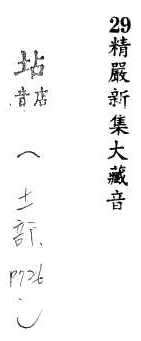 29精嚴新集大藏音
坫
音店
(土部,
P726)